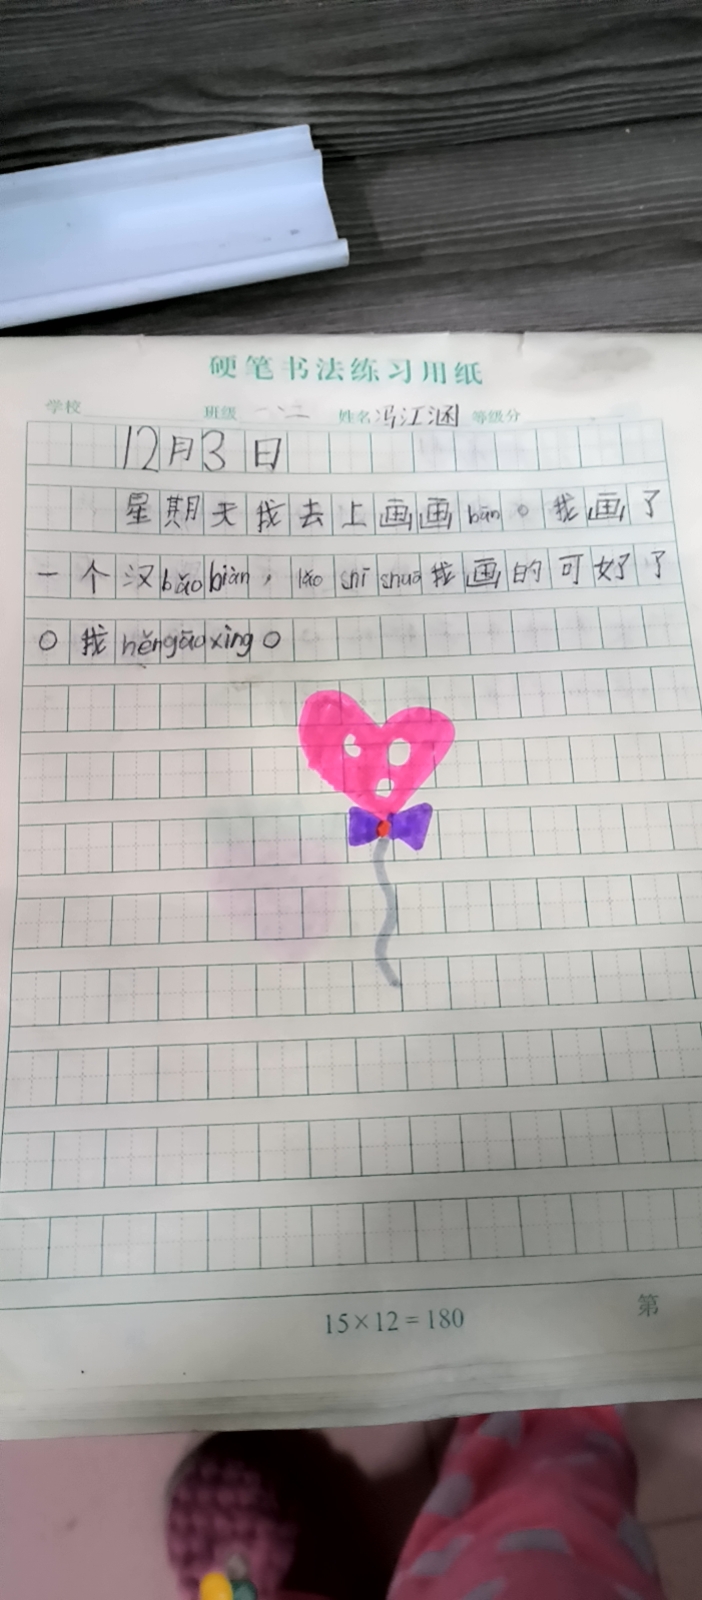 硬笔书法练习用纸
学校 班级 一.二 姓名 冯江涵 等级分
12月3日
星期天我去上画画bān。我画了
一个汉bǎobiàn，lǎo shī shuō我画的可好了
。我hěngāoxìng。
15×12=180
第